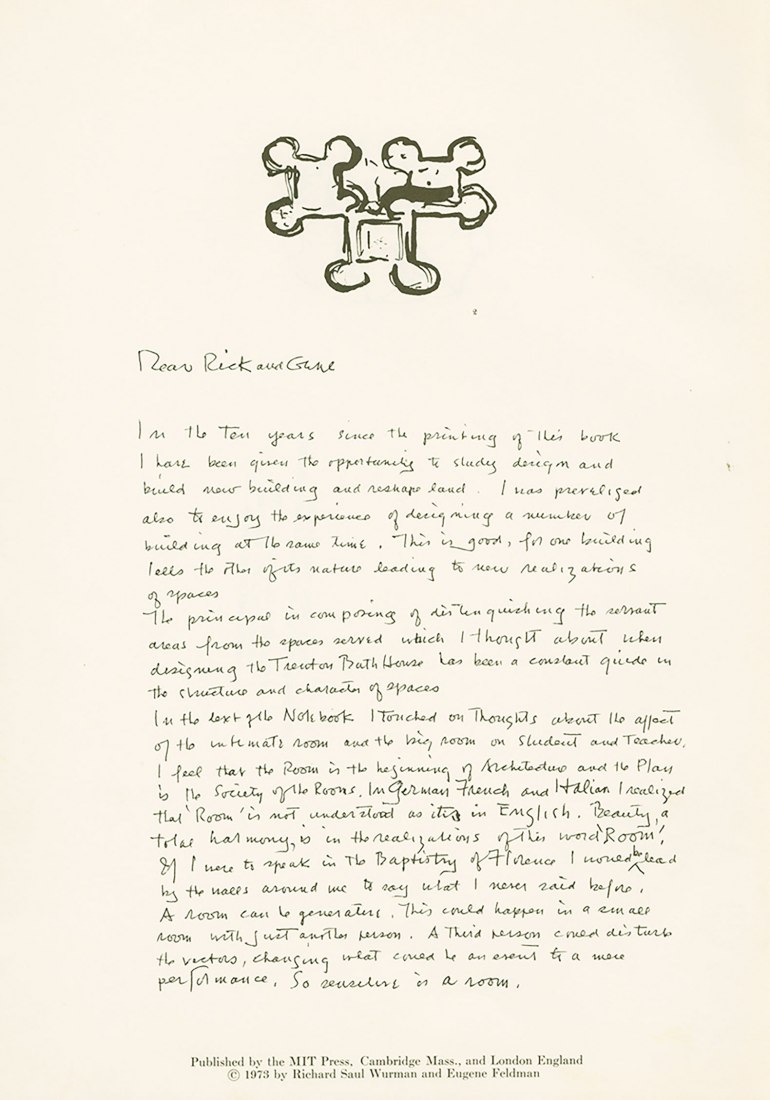 Dear Rick and Gene
In the Ten years since the printing of this book
I have been given the opportunity to study design and
build new building and reshape land. I was preveliged
also to enjoy the experience of designing a number of
building at the same time. This is good, for one building
tells the other of its nature leading to new realizations
of spaces
The principal in composing of distinquishing the servant
areas from the spaces served which I thought about when
designing the Trenton Bath House has been a constant guide in
the structure and character of spaces
In the text of the Notebook I touched on Thoughts about the affect
of the intimate room and the big room on student and Teacher.
I feel that the Room is the beginning of Architecture and the Plan
is the Society of the Rooms. In German French and Italian I realized
that 'Room' is not understood as it is in English. Beauty, a
total harmony, is in the realizations of this word 'Room'.
If I were to speak in The Baptistry of Florence I would be lead
by the walls around me to say what I never said before.
A room can be generative. This could happen in a small
room with just another person. A Third person could disturb
the vectors, changing what could be an event to a mere
performance. So sensitive is a room.
Published by the MIT Press, Cambridge Mass., and London England
© 1973 by Richard Saul Wurman and Eugene Feldman